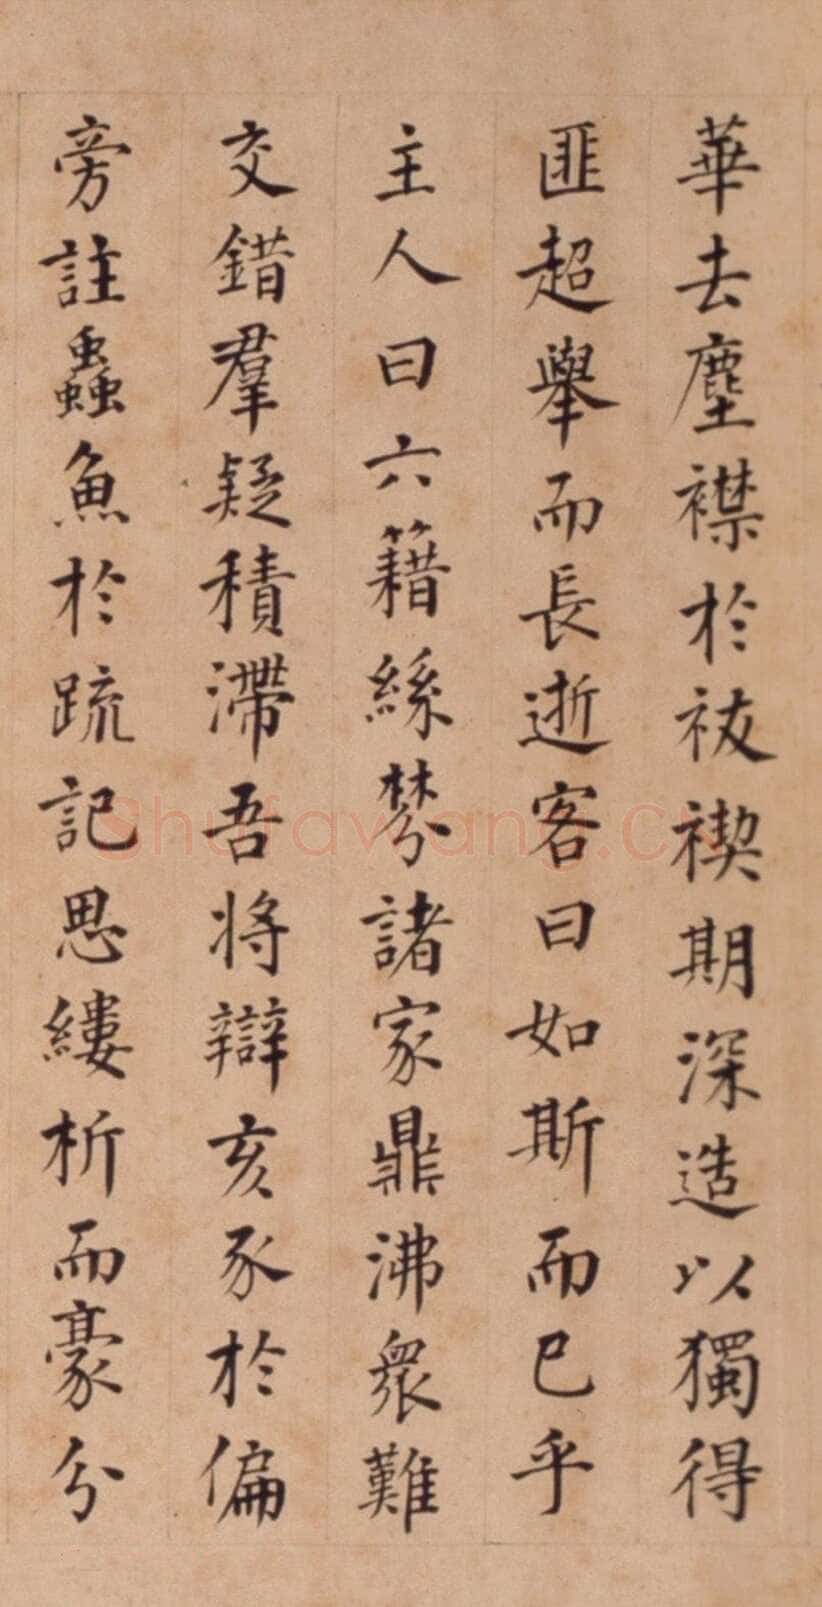 華去塵襟於祓禊期深造以獨得
匪超舉而長逝客曰如斯而已乎
主人曰六籍絲棼諸家鼎沸衆難
交錯羣疑積滯吾將辯亥豕於偏
旁註蟲魚於疏記思縷析而豪分